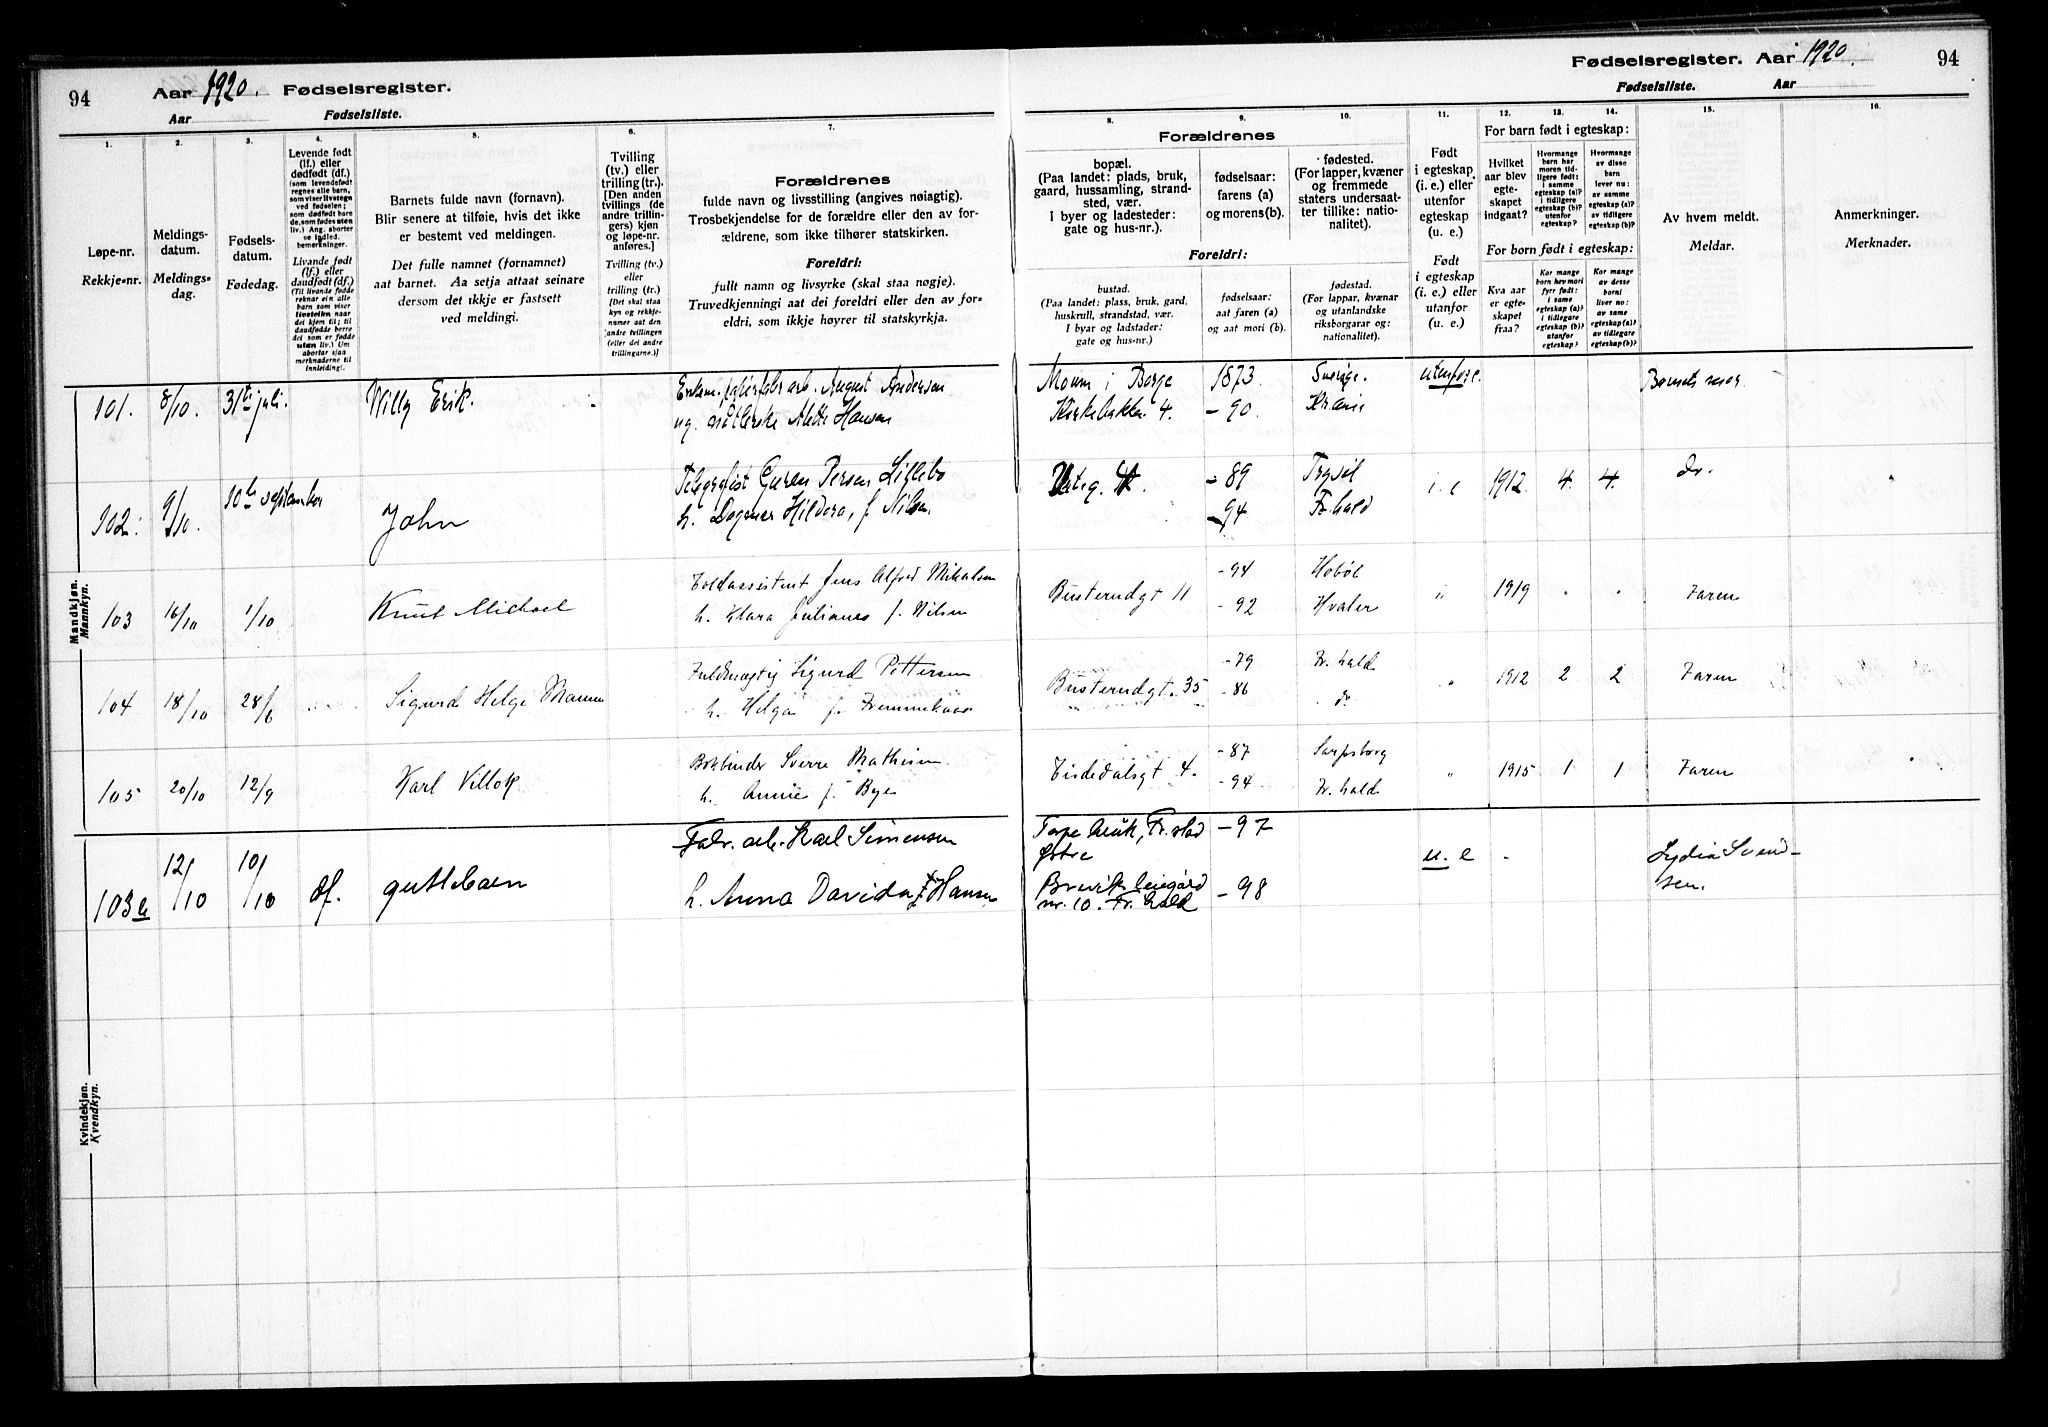 94
Aar 1920.
Fødselsregister.
Aar
Fødselsliste.
1.
Løpe-nr.
Rekkje-nr.
2.
Meldings-
datum.
Meldings-
dag.
3.
Fødsels-
datum.
Fødedag.
4.
Levende født
(lf.) eller
dødfødt (df.)
(som levendefødt
regnes alle barn,
som viser livstegn
ved fødselen;
som dødfødt bare
de, som fødes uten
liv.) Ang. aborter
se indled.
bemerkninger.
Livande født
(lf.) eller
daudfødt (df.)
(Til livande fødde
reknar ein alle
barn som viser
livsteikn naar
dei kjem til; til
daudfødde berre
dei som er fødde
utan liv.) Um
abortar sjaa
merknaderne til
innleiding!
5.
Barnets fulde navn (fornavn).
Blir senere at tilføie, hvis det ikke
er bestemt ved meldingen.
Det fulle namnet (fornamnet)
aat barnet. Aa setja attaat seinare
dersom det ikkje er fastsett
ved meldingi.
6.
Tvilling
(tv.) eller
trilling (tr.).
[Den anden
tvillings (de
andre trillin-
gers) kjøn
og løpe-nr.
anføres.]
Tvilling (tv.)
eller
trilling (tr.)
[Det skal staa
kyn og rekkje-
nummer aat den
andre tvillingen
(eller dei andre
trillingarne.)]
7.
Forældrenes
fulde navn og livsstilling (angives nøiagtig).
Trosbekjendelse for de forældre eller den av for-
ældrene, som ikke tilhører statskirken.
Foreldri:
fullt namn og livsyrke (skal staa nøgje).
Truvedkjenningi aat dei foreldri eller den av for-
eldri, som ikkje høyrer til statskyrkja.
Mandkjøn.
Mannkyn.
101.
8/10.
31te juli.
Willy Erik.
August Andersen
Alette Hansen
102.
9/10.
10de september
John
Telegrafist Persen Lillebo
h. Dagmar Hildora, f. Nilsen.
103
16/10
1/10
Knut Michael
Toldassistent Jens Alfred Mikalsen
h. Klara Juliane f. Nilsen
104
18/10
28/6
Sigurd Helge
Fuldmægtig Sigurd Pettersen
h. Helga f.
105
20/10
12/9
Karl
Bokbinder Sverre Mathisen
h. Annie f. Bye
Kvindekjøn.
Kvendkyn.
103 b
12/10
10/10
df.
guttebarn
Fabr. arb. Karl Simensen
h. Anna Davida Hansen
Fødselsregister. Aar 1920.
94
Fødselsliste.
Aar
Forældrenes
8.
bopæl.
(Paa landet: plads, bruk,
gaard, hussamling, strand-
sted, vær.
I byer og ladesteder:
gate og hus-nr.).
Foreldri:
bustad.
(Paa landet: plass, bruk, gard,
huskrull, strandstad, vær.
I byar og ladstader:
gate og hus-nr.)
9.
fødselsaar:
farens (a)
og morens(b).
fødselsaar:
aat faren (a)
og aat mori (b).
10.
fødested.
(For lapper, kvæner
og fremmede
staters undersaat-
ter tillike: natio-
nalitet).
fødestad.
(For lappar, kvænar
og utanlandske
riksborgarar og:
nationalitet).
11.
Født
i egteskap
(i. e.) eller
utenfor
egteskap
(u. e.)
Født
i egteskap
(i. e.) eller
utanfor
(u. e.)
12.
13.
14.
For barn født i egteskap:
Hvilket
aar blev
egte-
skapet
indgaat?
Hvormange
barn har
moren tid-
ligere født:
i samme
egteskap (a)?
i tidligere
egteskap (b)?
utenfor
egteskap?
Hvormange
av disse
barn
lever nu:
av samme
egteskap (a)?
av tidligere
egteskap (b)?
For born født i egteskap:
Kva aar
er egte-
skapet
fraa?
Kor mange
born hev mori
fyrr født:
i same
egteskap (a)?
i tidlegare
egteskap (b)?
utanfor
egteskap?
Kor mange
av desse
borni
liver no:
av same
egteskap (a)?
av tidlegare
egteskap (b)?
15.
Av hvem meldt.
Meldar.
16.
Anmerkninger.
Merknader.
Moum i Borge
1873.
Sverige.
utenfor.
Barnets mor
Kirkebakken 4.
- 90.
Kr.ania
- 89
Trysil
i. e
1912.
4.
4.
do.
- 94
Fr.hald
Busterudgt 11
- 94
Hobøl
"
1919
Faren
- 92
Hvaler
Busterudgt. 35
- 79
Fr.hald
"
1912
2
2
Faren
- 86
do
Tistedalsgt 4.
- 87
Sarpsborg
"
1915
1
1
Faren
- 94
Fr.hald
bruk, Fr.stad
- 97
Østre
u. e
Lydia Svend-
sen.
Brevik leiegård
nr. 10. Fr.hald
- 98